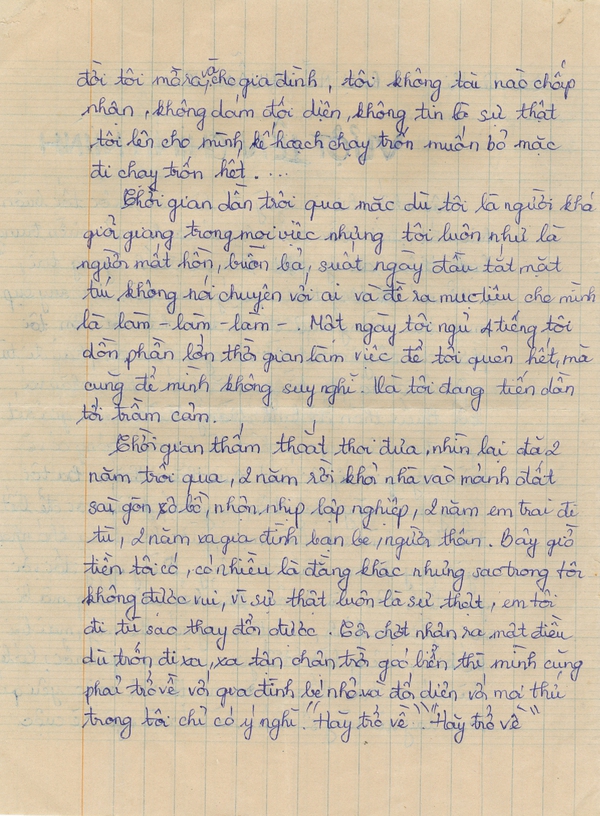 đời tôi mở ra, và cho gia đình, tôi không tài nào chấp
nhận, không dám đối diện, không tin là sự thật
tôi lên cho mình kế hoạch chạy trốn muốn bỏ mặc
đi chạy trốn hết....
Thời gian dần trôi qua mặc dù tôi là người khá
giỏi giang trong mọi việc nhưng tôi luôn như là
người mất hồn, buồn bả, suốt ngày đầu tắt mặt
tũi không nói chuyện với ai và đề ra mục tiêu cho mình
là làm - làm - làm -. Một ngày tôi ngủ 4 tiếng tôi
dồn phần lớn thời gian làm việc để tôi quên hết, mà
cũng để mình không suy nghĩ. Và tôi đang tiến dần
tới trầm cảm.
Thời gian thấm thoát thoi đưa, nhìn lại đã 2
năm trôi qua, 2 năm rời khỏi nhà vào mảnh đất
sài gòn xô bồ, nhộn nhịp lập nghiệp, 2 năm em trai đi
tù, 2 năm xa gia đình bạn bè, người thân. Bây giờ
tiền tôi có, có nhiều là đằng khác nhưng sao trong tôi
không được vui, vì sự thật luôn là sự thật, em tôi
đi tù sao thay đổi được. Tôi chợt nhận ra một điều
dù trốn đi xa, xa tận chân trời góc biển thì mình cũng
phải trở về với gia đình bé nhỏ và đối diện với mọi thứ
trong tôi chỉ có ý nghĩ. "Hãy trở về" "Hãy trở về"